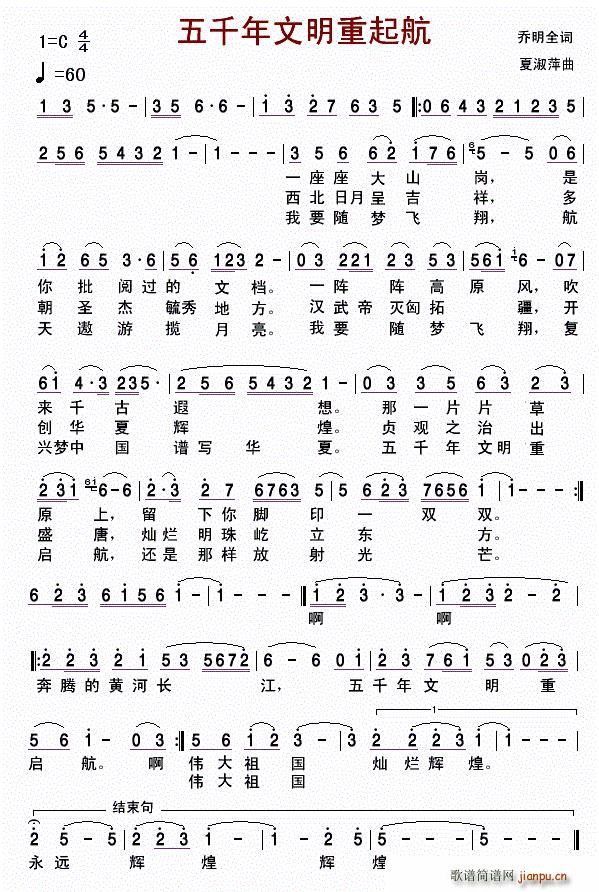 五千年文明重起航
1=C 4/4
乔明全词
♩=60
夏淑萍曲
1 3 5·- | 3 5 6·6· | 1 3 2 7 6 3 5 |: 0 6 4 3 2 1 2 3 5
2 5 6 5 4 3 2 1 - | 1 - - - | 3 5 6 6 2 1 7 6 | 5 - 5 0 6
一座座大山岗，是
西北日月呈吉祥，多
我要随梦飞翔，航
1 2 6 5 3·6 | 5 6 2 3 2 1 2 - | 0 3 2 2 1 0 3 2 3 | 5 6 1 6 - 0 7
你批阅过的文档。一阵阵高原风，吹
朝圣杰毓秀地方。汉武帝灭匈拓疆，开
天遨游揽月亮。我要随梦飞翔，复
6 1 4·3 2 3 5· | 2 5 6 5 4 3 2 1 - | 0 3 3 5 6 3 2 3
来千古遐想。那一片片草
创华夏辉煌。贞观之治出
兴梦中国谱写华夏。五千年文明重
2 3 1 6 - 6 | 2·3 2 7 6 7 6 3 5 | 5 6 2 3 7 6 5 6 1 | 1 - - :|
原上，留下你脚印一双双。
盛唐，灿烂明珠屹立东方。
启航，还是那样放射光芒。
6 2 3 6 1 5 6 1 - | 1 - - - | 1 2 3 3·3 | 1 2 3 2 - 2
啊啊
|: 2 2 3 2 1 5 3 5 6 7 2 | 6 - 6 0 1 | 2 3 7 6 1 5 3 0 2 3
奔腾的黄河长江，五千年文明重
1
5 6 1 - 0 3 :| 5 6 1 2 3 3 | 2 2 2 3 1 - :|
启航。啊伟大祖国灿烂辉煌。
伟大祖国
结束句
2 5 - 5 | 2 3 1 - | 2 5 - 5 | 1 - - - | 1 - - - ||
永远辉煌辉煌
歌谱简谱网
jianpu.cn